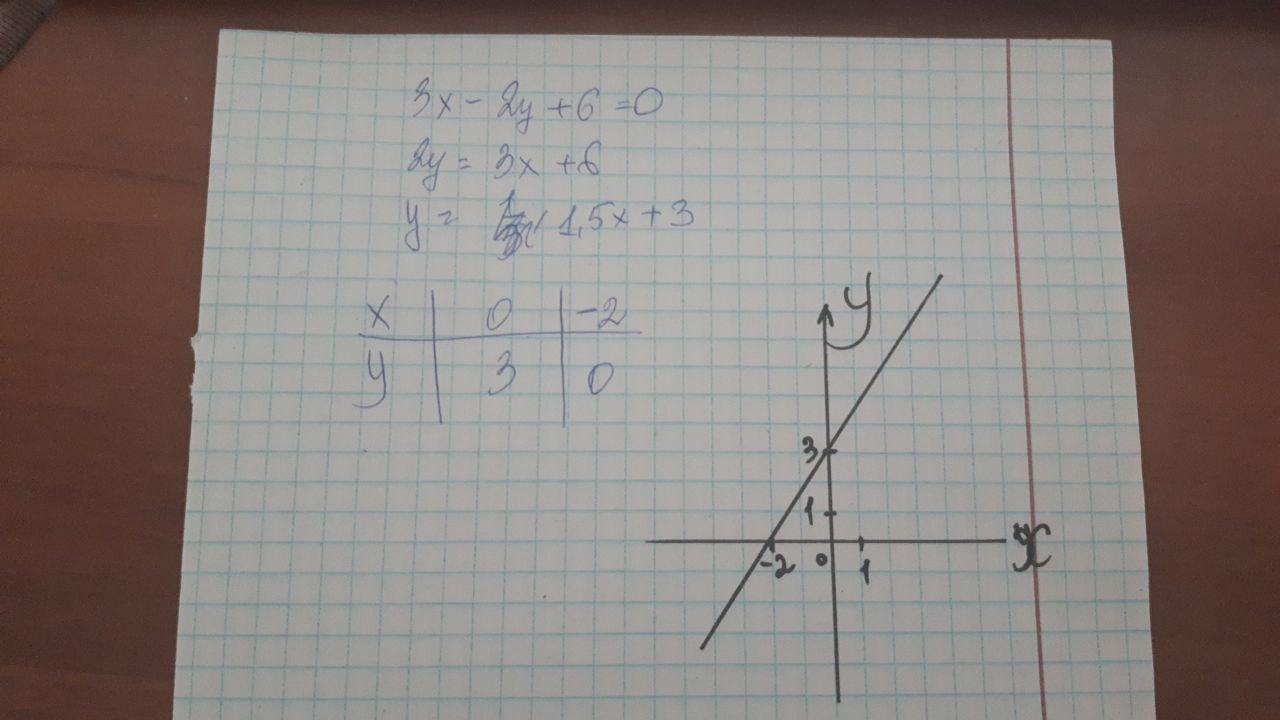 3x - 2y + 6 = 0
2y = 3x + 6
y = 1,5x + 3
x 0 -2
y 3 0
y
3
1
-2 0 1
x